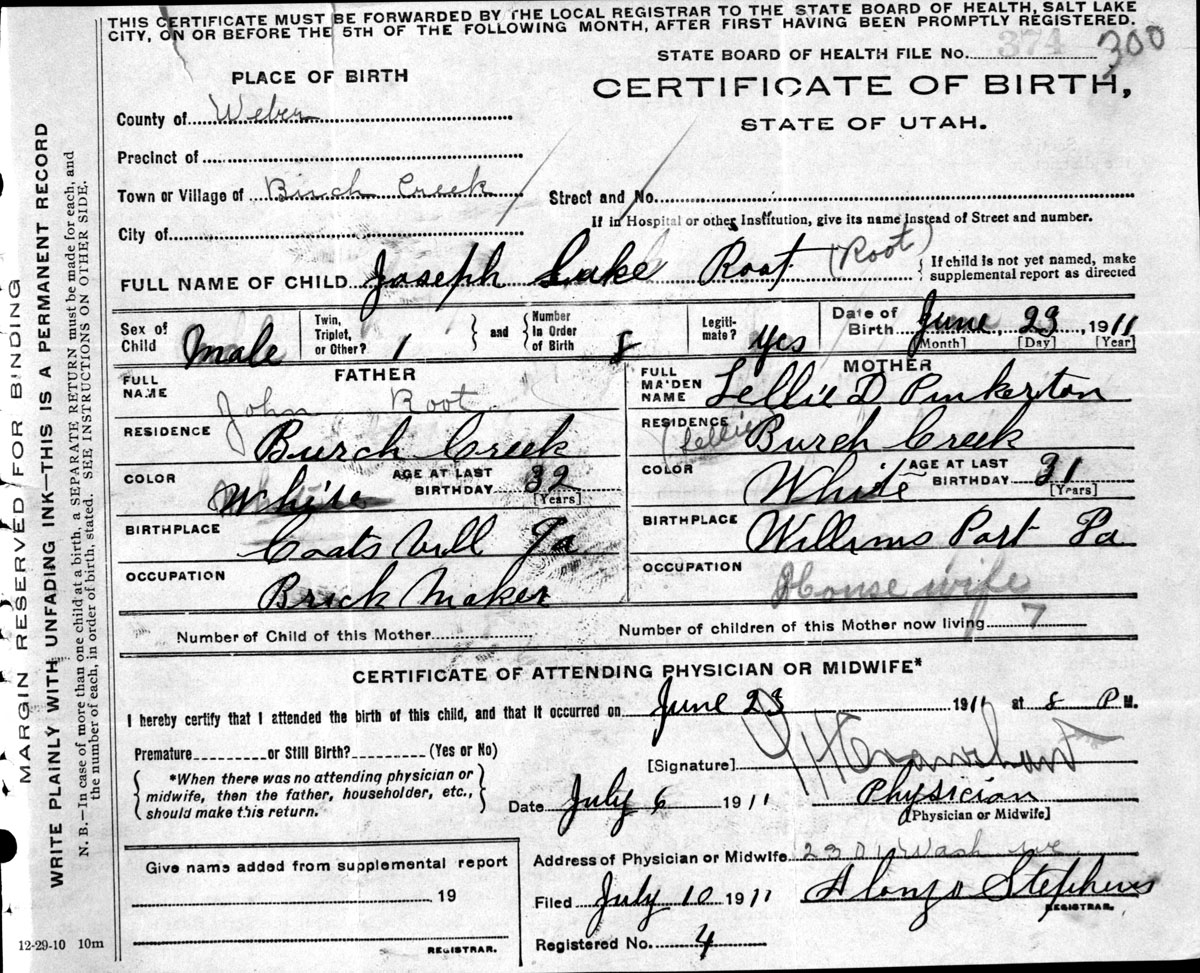 THIS CERTIFICATE MUST BE FORWARDED BY THE LOCAL REGISTRAR TO THE STATE BOARD OF HEALTH, SALT LAKE
CITY, ON OR BEFORE THE 5TH OF THE FOLLOWING MONTH, AFTER FIRST HAVING BEEN PROMPTLY REGISTERED.
STATE BOARD OF HEALTH FILE No. 374 300
PLACE OF BIRTH
CERTIFICATE OF BIRTH,
STATE OF UTAH.
County of Weber
Precinct of
Town or Village of Birch Creek
Street and No.
If in Hospital or other Institution, give its name instead of Street and number.
City of
FULL NAME OF CHILD Joseph Lake Root (Root)
If child is not yet named, make
supplemental report as directed
Sex of Child Male
Twin, Triplet, or Other? 1
and Number In Order of Birth 8
Legiti-mate? Yes
Date of Birth June 23, 1911
[Month] [Day] [Year]
FATHER
FULL NAME John Root
RESIDENCE Burch Creek
COLOR White
AGE AT LAST BIRTHDAY 32
[Years]
BIRTHPLACE Coats vill Pa
OCCUPATION Brick Maker
MOTHER
FULL MAIDEN NAME Lellie D Pinkerton
RESIDENCE (Lellie) Burch Creek
COLOR White
AGE AT LAST BIRTHDAY 31
[Years]
BIRTHPLACE Willims Port Pa
OCCUPATION House wife
Number of Child of this Mother
Number of children of this Mother now living 7
CERTIFICATE OF ATTENDING PHYSICIAN OR MIDWIFE*
I hereby certify that I attended the birth of this child, and that it occurred on June 23 1911 at 8 P M.
Premature or Still Birth? (Yes or No)
[Signature]
*When there was no attending physician or
midwife, then the father, householder, etc.,
should make this return.
Date July 6 1911
Physician
[Physician or Midwife]
Give name added from supplemental report
19
REGISTRAR.
Address of Physician or Midwife 2301 Wash ave
Filed July 10 1911
Alonzo Stephens
REGISTRAR.
Registered No. 4
12-29-10 10m
MARGIN RESERVED FOR BINDING
WRITE PLAINLY WITH UNFADING INK—THIS IS A PERMANENT RECORD
N. B.—In case of more than one child at a birth, a SEPARATE RETURN must be made for each, and
the number of each, in order of birth, stated. SEE INSTRUCTIONS ON OTHER SIDE.